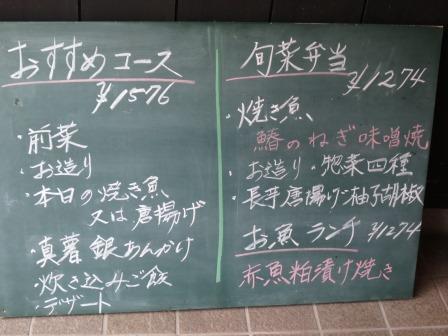 おすすめコース
¥1576
・前菜
・お造り
・本日の焼き魚
又は唐揚げ
・真薯銀あんかけ
・炊き込みご飯
・デザート
旬菜弁当
¥1274
・焼き魚
鰆のねぎ味噌焼
・お造り・惣菜四種
・長芋唐揚げ 柚子胡椒
お魚ランチ ¥1274
赤魚粕漬け焼き